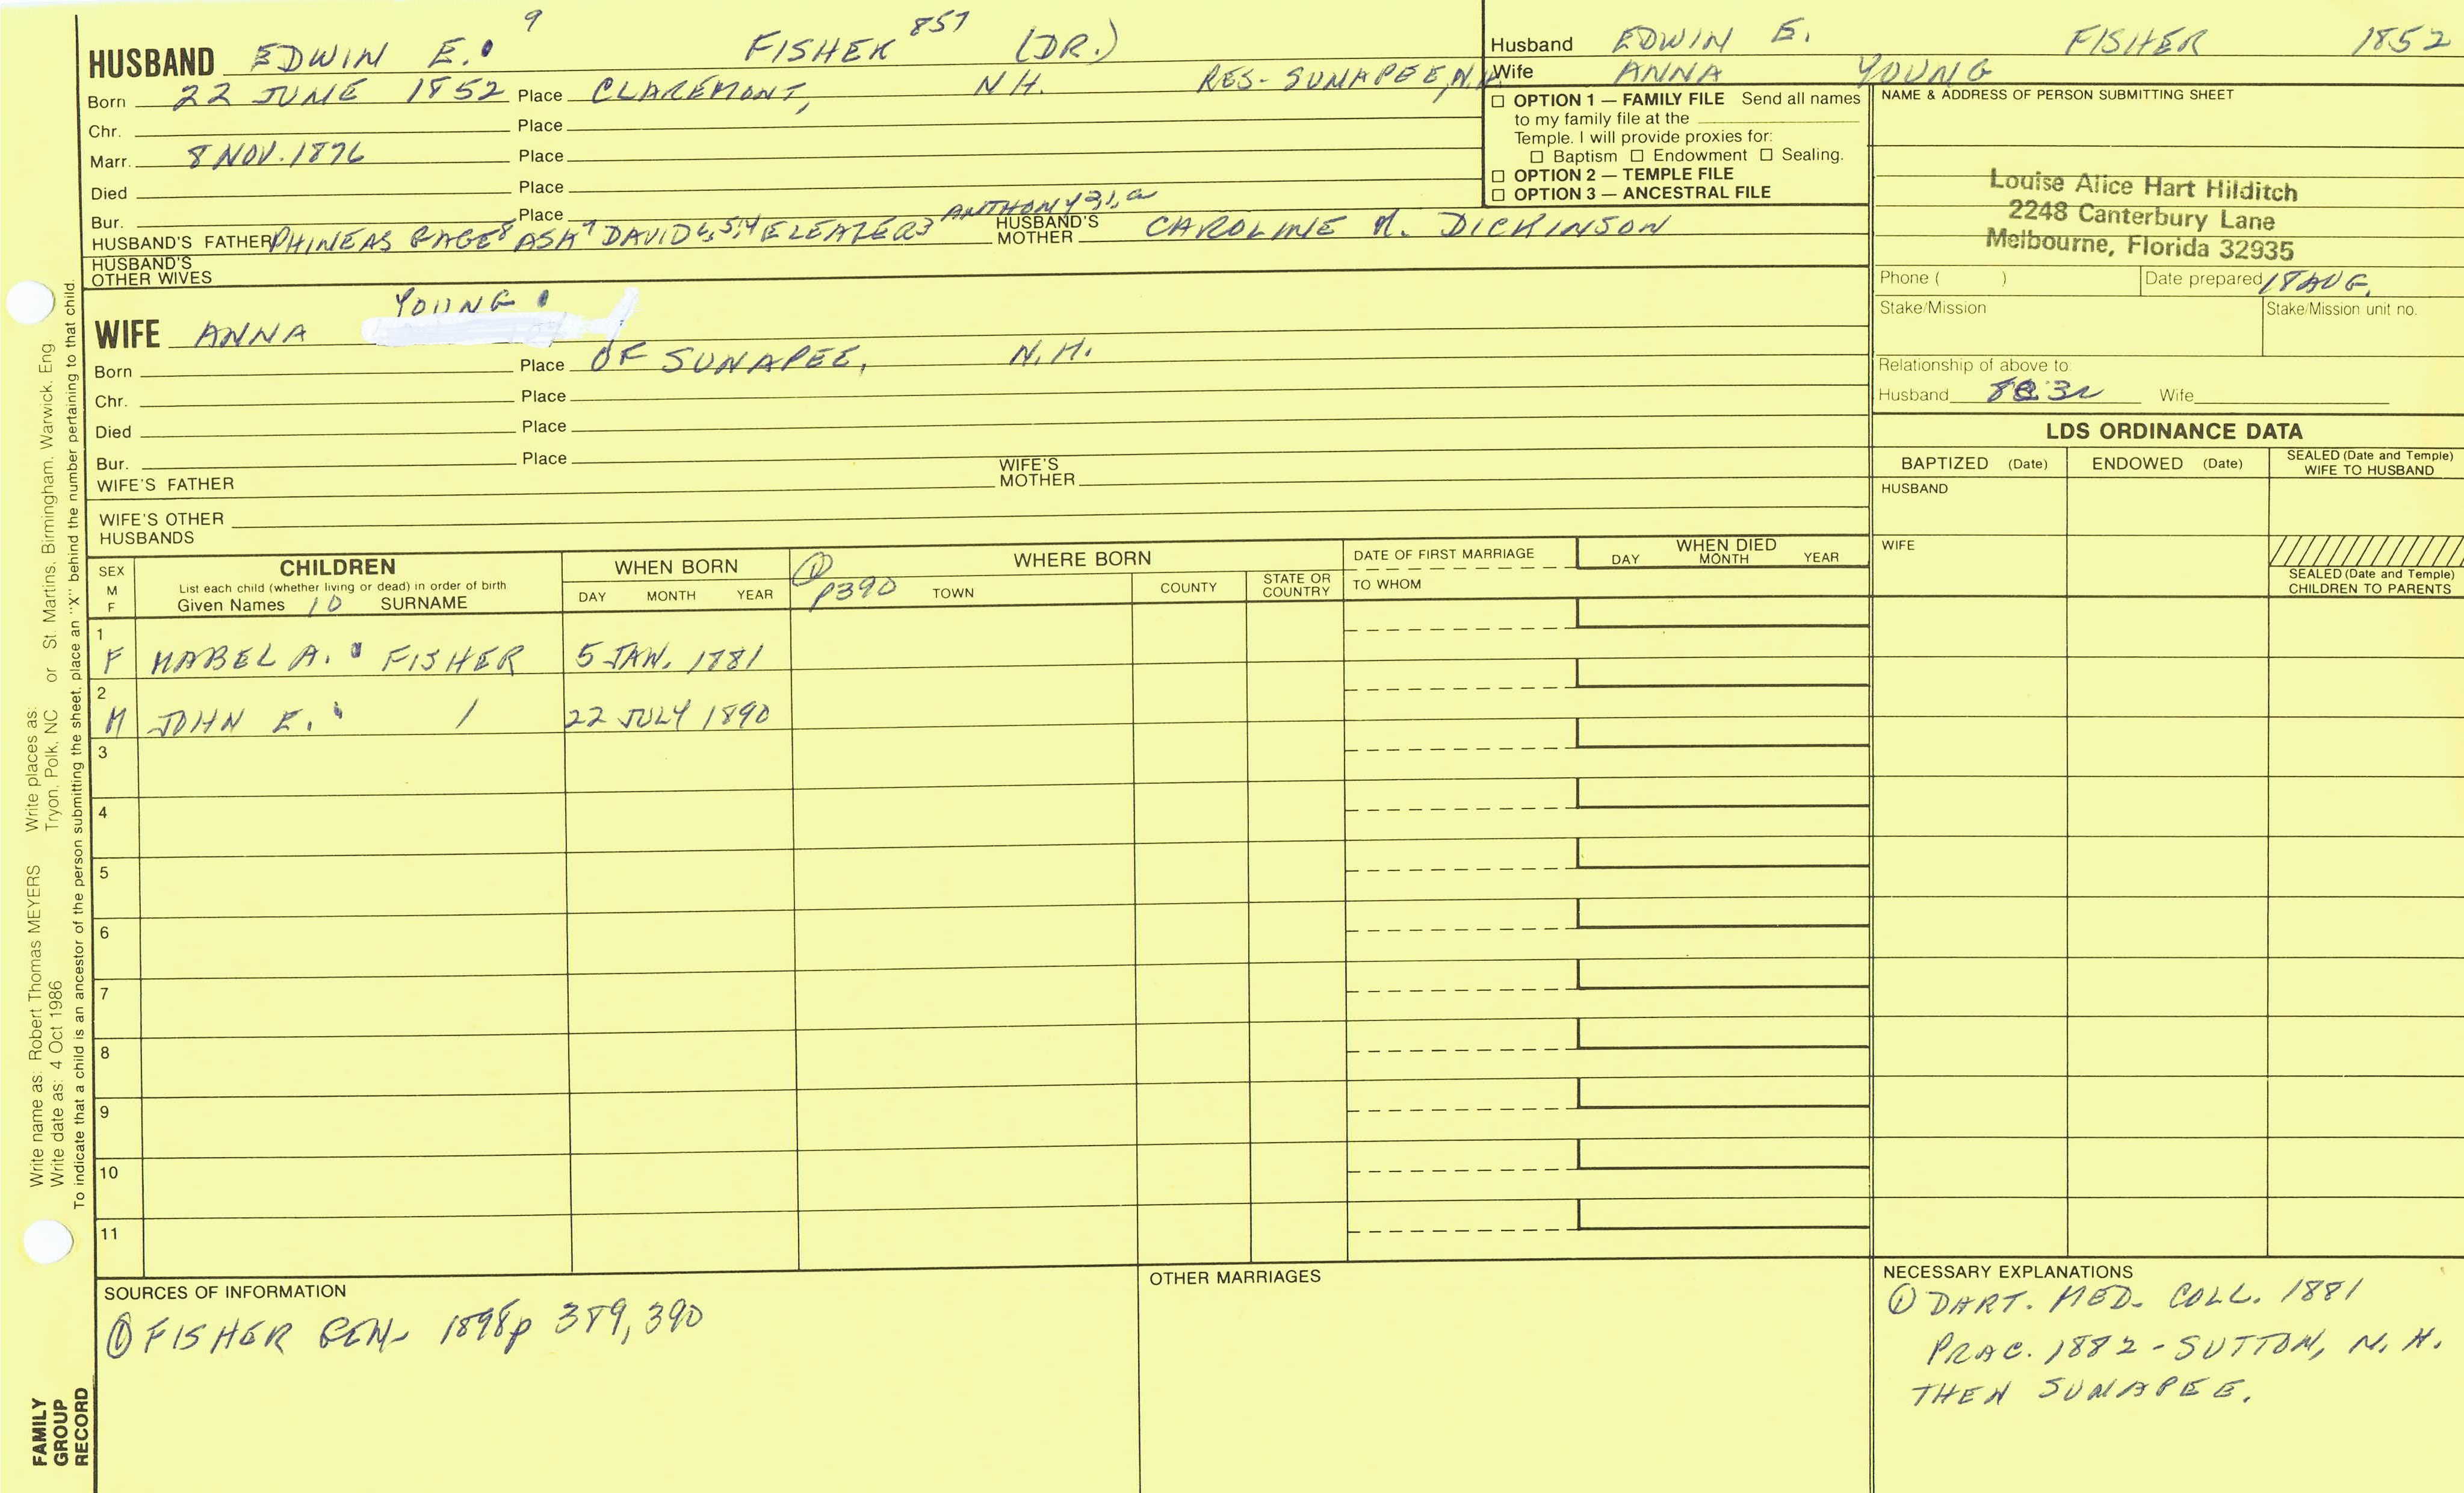 9 857
HUSBAND EDWIN E. FISHER (DR.)
Born 22 JUNE 1852 Place CLAREMONT, N.H. RES- SUNAPEE, N.H.
Chr. Place
Marr. 8 NOV. 1876 Place
Died Place
Bur. Place
HUSBAND'S FATHER PHINEAS GAGE8 ASA7 DAVID6,5,4 ELEAZER3 ANTHONY2,1,a HUSBAND'S MOTHER CAROLINE M. DICKINSON
HUSBAND'S
OTHER WIVES
YOUNG
WIFE ANNA
Born Place OF SUNAPEE, N.H.
Chr. Place
Died Place
Bur. Place
WIFE'S FATHER WIFE'S MOTHER
WIFE'S OTHER
HUSBANDS
Husband EDWIN E. FISHER 1852
Wife ANNA YOUNG
☐ OPTION 1 — FAMILY FILE Send all names
to my family file at the
Temple. I will provide proxies for:
☐ Baptism ☐ Endowment ☐ Sealing.
☐ OPTION 2 — TEMPLE FILE
☐ OPTION 3 — ANCESTRAL FILE
NAME & ADDRESS OF PERSON SUBMITTING SHEET
Louise Alice Hart Hilditch
2248 Canterbury Lane
Melbourne, Florida 32935
Phone ( ) Date prepared 18 AUG.
Stake/Mission Stake/Mission unit no.
Relationship of above to
Husband Wife
LDS ORDINANCE DATA
BAPTIZED (Date) ENDOWED (Date) SEALED (Date and Temple)
WIFE TO HUSBAND
HUSBAND
WIFE
SEALED (Date and Temple)
CHILDREN TO PARENTS
SEX
M
F
CHILDREN
List each child (whether living or dead) in order of birth
Given Names 10 SURNAME
WHEN BORN
DAY MONTH YEAR
① P390
WHERE BORN
TOWN COUNTY STATE OR COUNTRY
DATE OF FIRST MARRIAGE
TO WHOM
WHEN DIED
DAY MONTH YEAR
1
F MABEL A. FISHER 5 JAN. 1881
2
M JOHN E. / 22 JULY 1890
3
4
5
6
7
8
9
10
11
SOURCES OF INFORMATION
① FISHER GEN- 1898 p 389, 390
OTHER MARRIAGES
NECESSARY EXPLANATIONS
① DART. MED. COLL. 1881
PRAC. 1882 - SUTTON, N.H.
THEN SUNAPEE.
Write name as: Robert Thomas MEYERS Write places as:
Write date as: 4 Oct 1986 Tryon, Polk, NC or St. Martins, Birmingham, Warwick, Eng
To indicate that a child is an ancestor of the person submitting the sheet, place an "X" behind the number pertaining to that child.
FAMILY
GROUP
RECORD